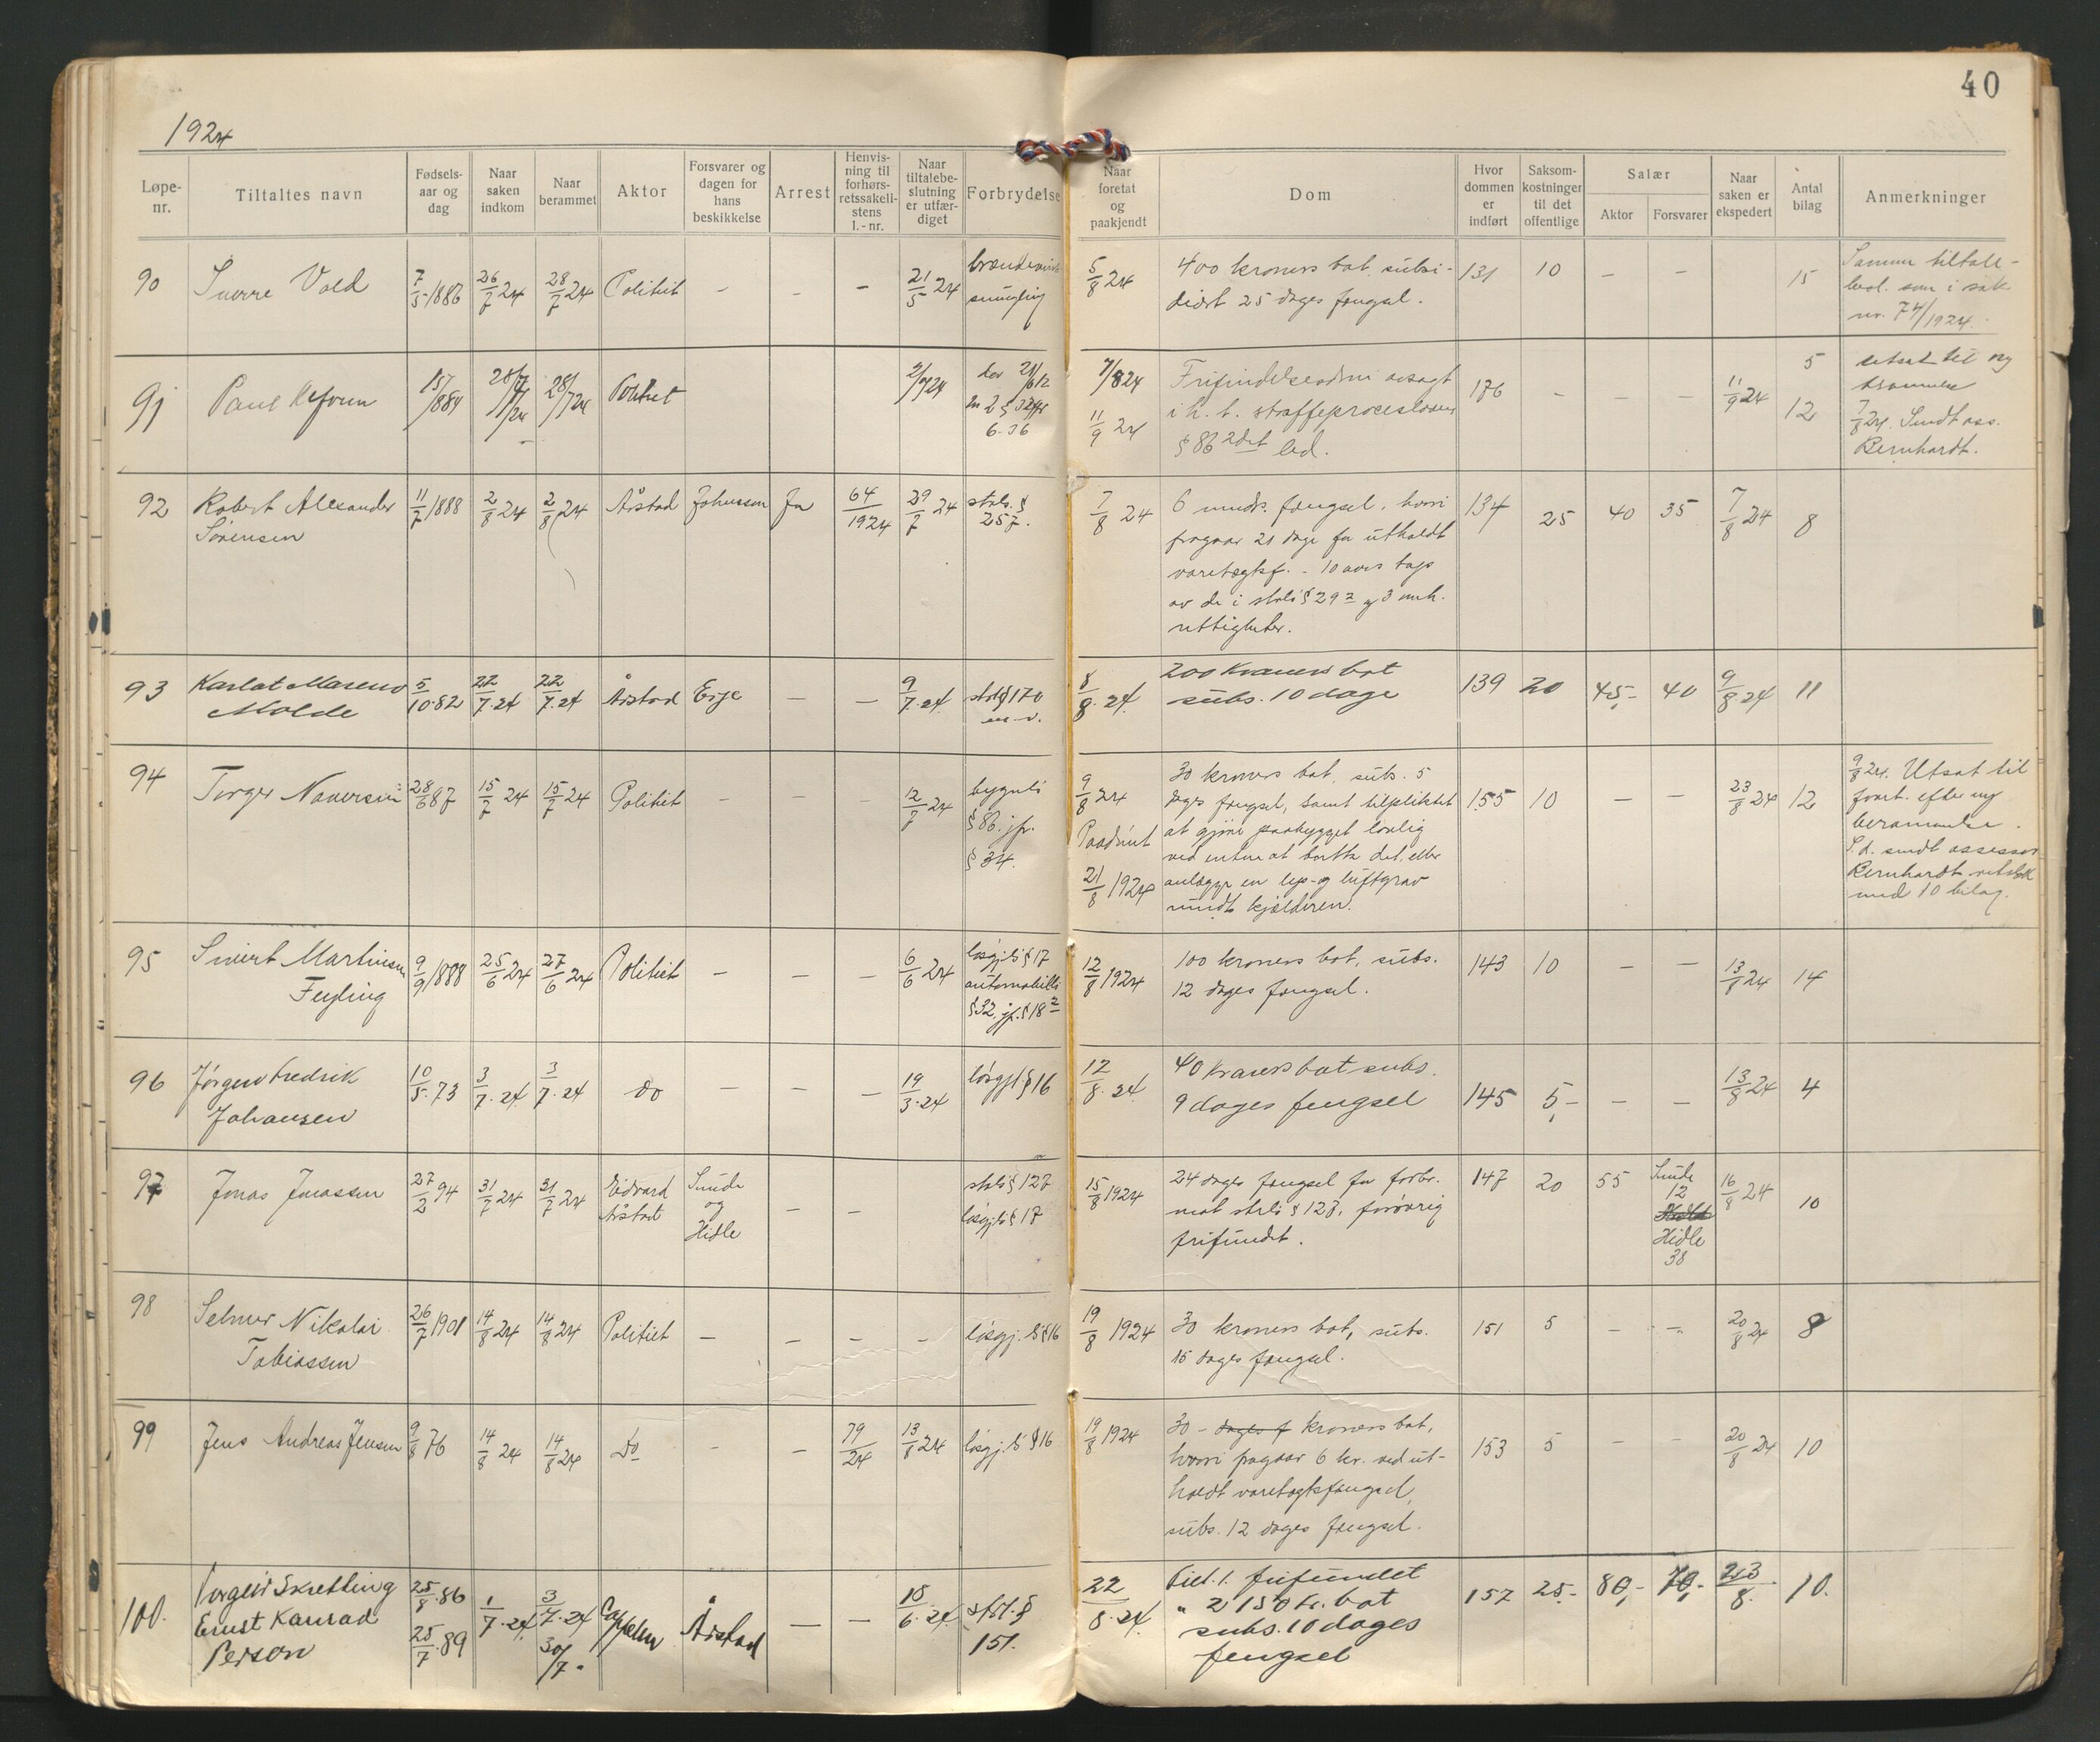 40
1924
Løpe-nr.
Tiltaltes navn
Fødsels-aar og dag
Naar saken indkom
Naar berammet
Aktor
Forsvarer og dagen for hans beskikkelse
Arrest
Henvis-ning til forhørs-retssakeli-stens l.-nr.
Naar tiltalebe-slutning er utfær-diget
Forbrydelse
Naar foretat og paakjendt
Dom
Hvor dommen er indført
Saksom-kostninger til det offentlige
Salær
Aktor
Forsvarer
Naar saken er ekspedert
Antal bilag
Anmerkninger
90 Sverre Vold 7/5 1886 26/7 24 28/7 24 Politiet – – – 21/5 24
5/8 24 400 kroners bot, subsi-
diært 25 dages fængsel.
131 10 – – 15
Samme tiltale-
besl. som i sak
nr. 74/1924.
91 Paul 28/7 24 Politiet 2/7 24
7/8 24
11/9 24
i h. t. straffeprocesloven
§ 86 2det led.
176 – – – 11/9 24
5
12
utsat til ny
7/8 24. Sendt ass.
Bernhardt.
92 Robert Alexander
Sørensen
11/7 1888 2/8 24 2/8 24 Årstad Johnsen Ja 64/1924 29/7 24 strls. §
257.
7/8 24 6 mndrs. fængsel, hvori
fragaar 21 dage for utholdt
varetægtsf. –
av de i strls § 29 2 og 3 nævnte
rettigheter.
134 25 40 35 7/8 24 8
93
Molde
5/10.82 22/7.24 22/7.24 Årstad Erge – – 9/7.24 strl § 170
8/8.24 200 kroners bot
subs. 10 dage
139 20 45,- 40 9/8 24 11
94 Torger 28/6 87 15/7 24 15/7 24 Politiet – – – 12/7 24 bygnls
§ 86. jfr.
§ 34.
9/8 24
Paadømt
21/8 1924
30 kroners bot, subs. 5
dages fængsel, samt tilpliktet
at gjøre paabygget lovlig
ved enten at bortta det, eller
anlægge en lys- og luftgrav
rundt kjælderen.
155 10 – – 23/8 24 12
9/8 24. Utsat til
foret. efter ny
berammelse.
S. d. sendt assessor
Bernhardt retsbok
med 10 bilag.
95 Sivert Martinsen
Feyling
9/9 1888 25/6 24 27/6 24 Politiet – – – 6/6 24 løsgj. ls § 17
automobills
§ 32. jfr. § 18 2
12/8 1924 100 kroners bot, subs.
12 dages fængsel.
143 10 – – 13/8 24 14
96 Jørgen Fredrik
Johansen
10/5.73 3/7.24 3/7.24 Do – – – 19/3.24 løsgjl § 16
12/8.24 40 kroners bot subs.
9 dages fengsel
145 5,- – – 13/8 24 4
97 Jonas Jonassen 27/2 94 31/7 24 31/7 24 Eidvard
Årstad
Sunde
og
Hidle
– – strls § 127
løsgj. ls § 17
15/8 1924 24 dages fængsel for forbr.
mot strls § 127, forøvrig
frifundet.
147 20 55 Sunde
12
Hidle
Hidle
38
16/8 24 10
98 Selmer Nikolai
Tobiassen
26/7 1901 14/8 24 14/8 24 Politiet – – – – løsgj. ls § 16
19/8 1924 30 kroners bot, subs.
15 dages fængsel.
151 5 – – 20/8 24 8
99 Jens Andreas Jensen 9/8 76 14/8 24 14/8 24 Do – – 79/24 13/8 24 løsgj. ls § 16
19/8 1924 30 – dages f kroners bot,
hvori fragaar 6 kr. ved ut-
holdt varetægtsfængsel,
subs. 12 dages fængsel.
153 5 – – 20/8 24 10
100. Torgeir Skretting
Ernst Konrad
Person
25/8.86
25/7.89
1/7.24 3/7.24
30/7.
Cappelen Årstad – – 18/6.24 strl. §
151.
22/8.24 Tilt. 1. frifundet
" 2 150 kr. bot
subs. 10 dages
fengsel
157 25.- 80,- 70,- 23/8. 10.